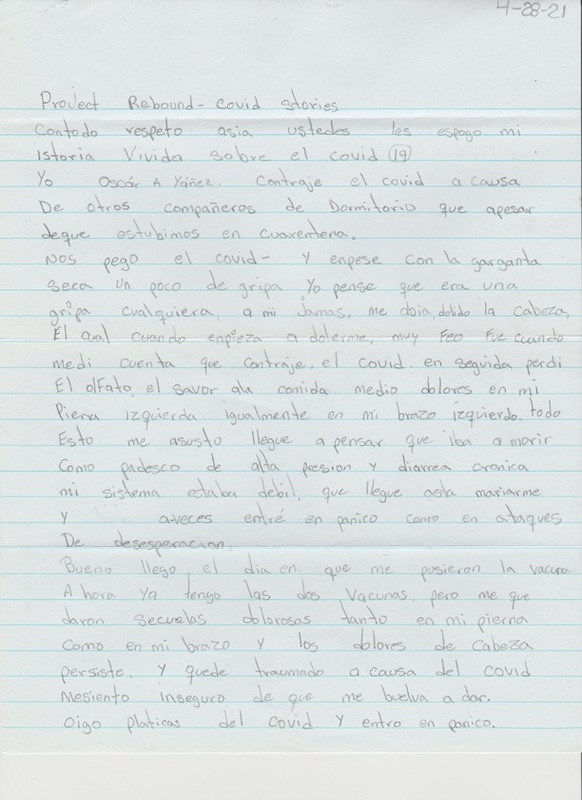 4-28-21
Project Rebound - Covid stories
Contodo respeto asia ustedes les espogo mi
istoria Vivida sobre el covid (19)
Yo Oscár A Yáñez. Contraje el covid a causa
De otros compañeros de Dormitorio que apesar
deque ostubimos en cuarentena.
Nos pego el covid - y enpese con la garganta
seca un poco de gripa Yo pense que era una
gripa cualquiera, a mi Jamas, me abia, dolido la Cabeza,
El cual cuando enpieza a dolerme, muy Feo Fue cuando
medi cuenta que contraje, el covid. en seguida perdi
El olfato, el savor ala comida medio dolores en mi
Pierna izquierda igualmente en mi brazo izquierdo. todo
Esto me asusto llegue a pensar que iba a morir
Como padesco de alta presion y diarrea cronica
mi sistema estaba debil, que llegue asta mariarme
y aveces entré en panico como en ataques
De desesperacion,
Bueno llego, el dia en que me pusieron la vacuna
Ahora Ya tengo las dos Vacunas, pero me que
daron secuelas dolorosas tanto en mi pierna
Como en mi brazo y los dolores de Cabesa
persiste, y quede traumado a causa del covid
Mesiento inseguro de que me buelva a dar.
Oigo platicas del covid y entro en panico.